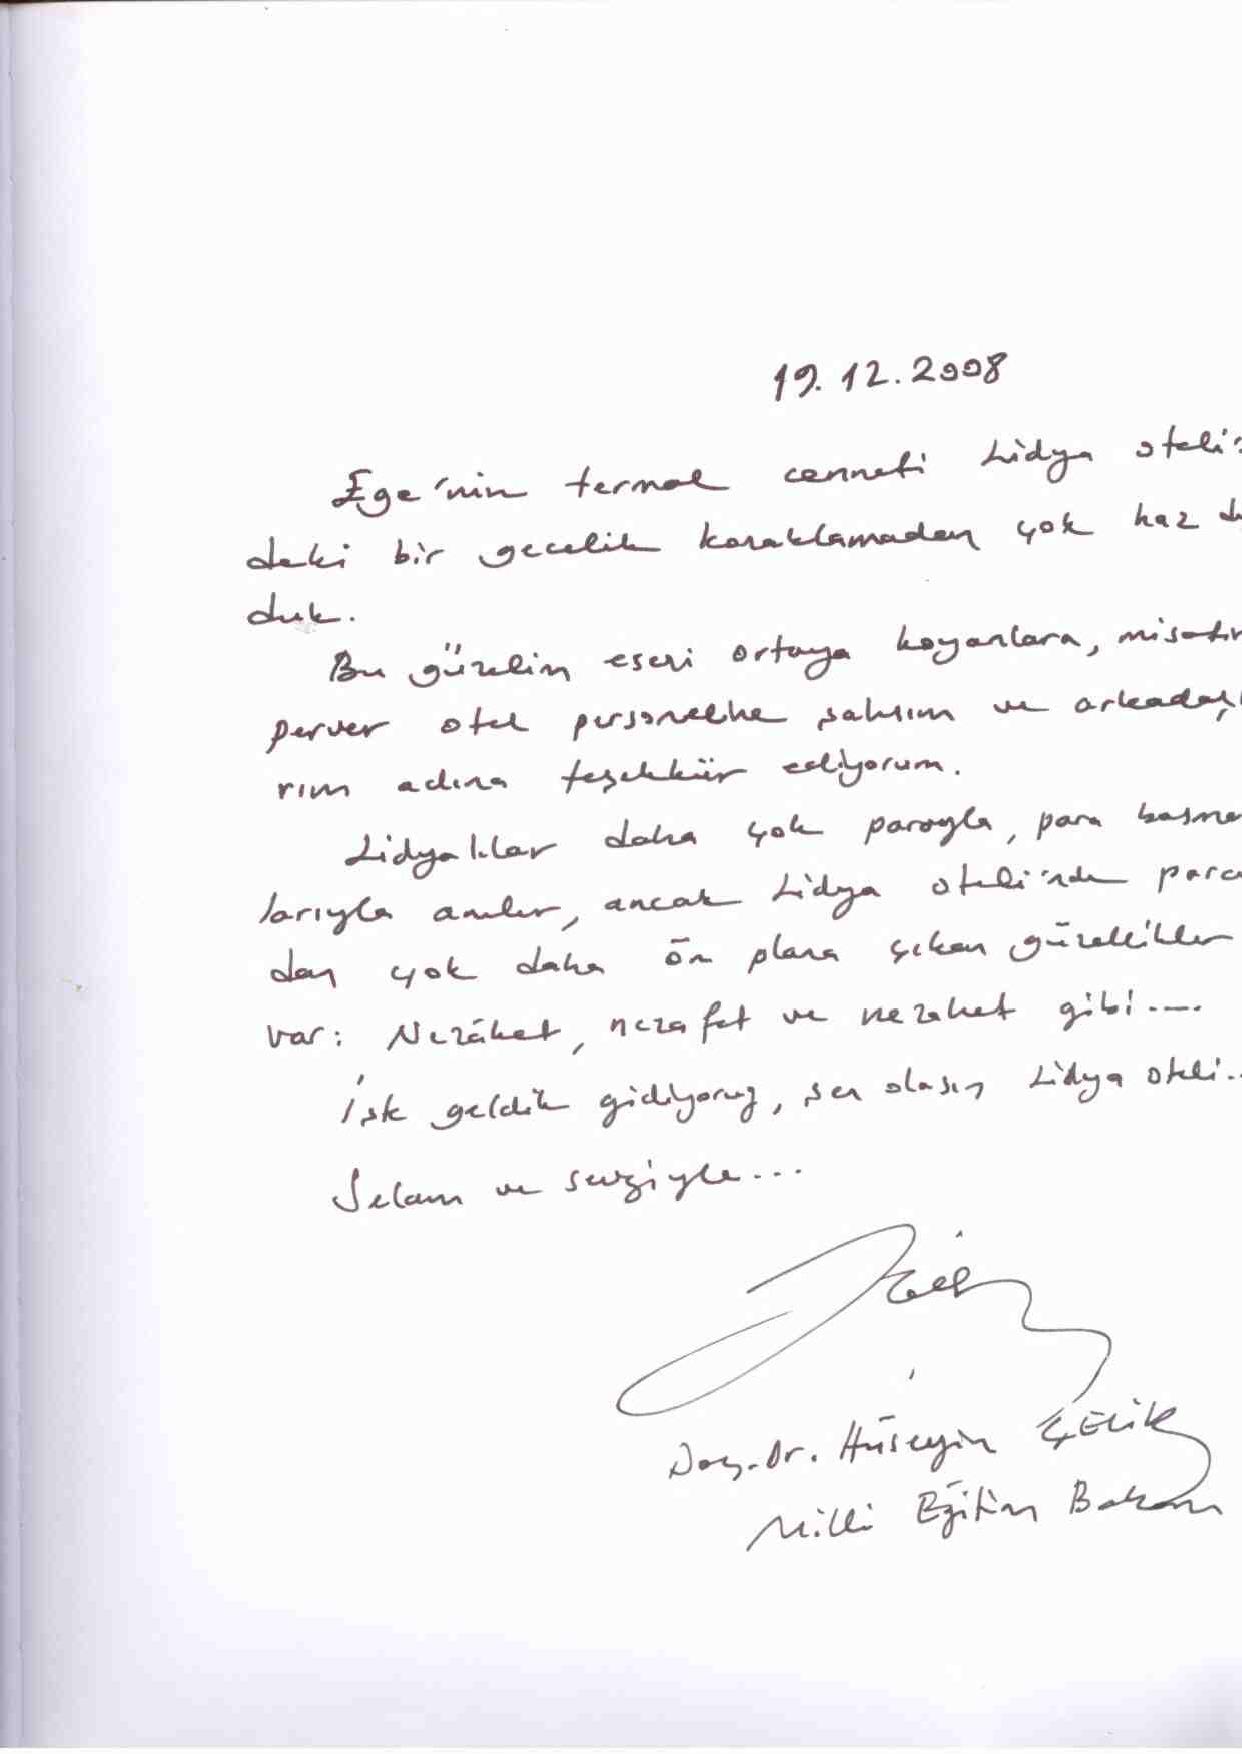 19.12.2008
Ege'nin termal cenneti Lidya oteli'
deki bir gecelik konaklamadan çok haz du
duk.
Bu güzelim eseri ortaya koyanlara, misafir
perver otel personeline şahsım ve arkadaşl
rım adına teşekkür ediyorum.
Lidyalılar daha çok parayla, para basma
larıyla anılır, ancak Lidya oteli'nde para
dan çok daha ön plana çıkan güzellikler
var: Nezâket, nezafet ve nezahet gibi....
İşte geldik gidiyoruz, şen olasın Lidya oteli..
Selam ve sevgiyle...
Doç.Dr. Hüseyin ÇELİK
Milli Eğitim Bakanı